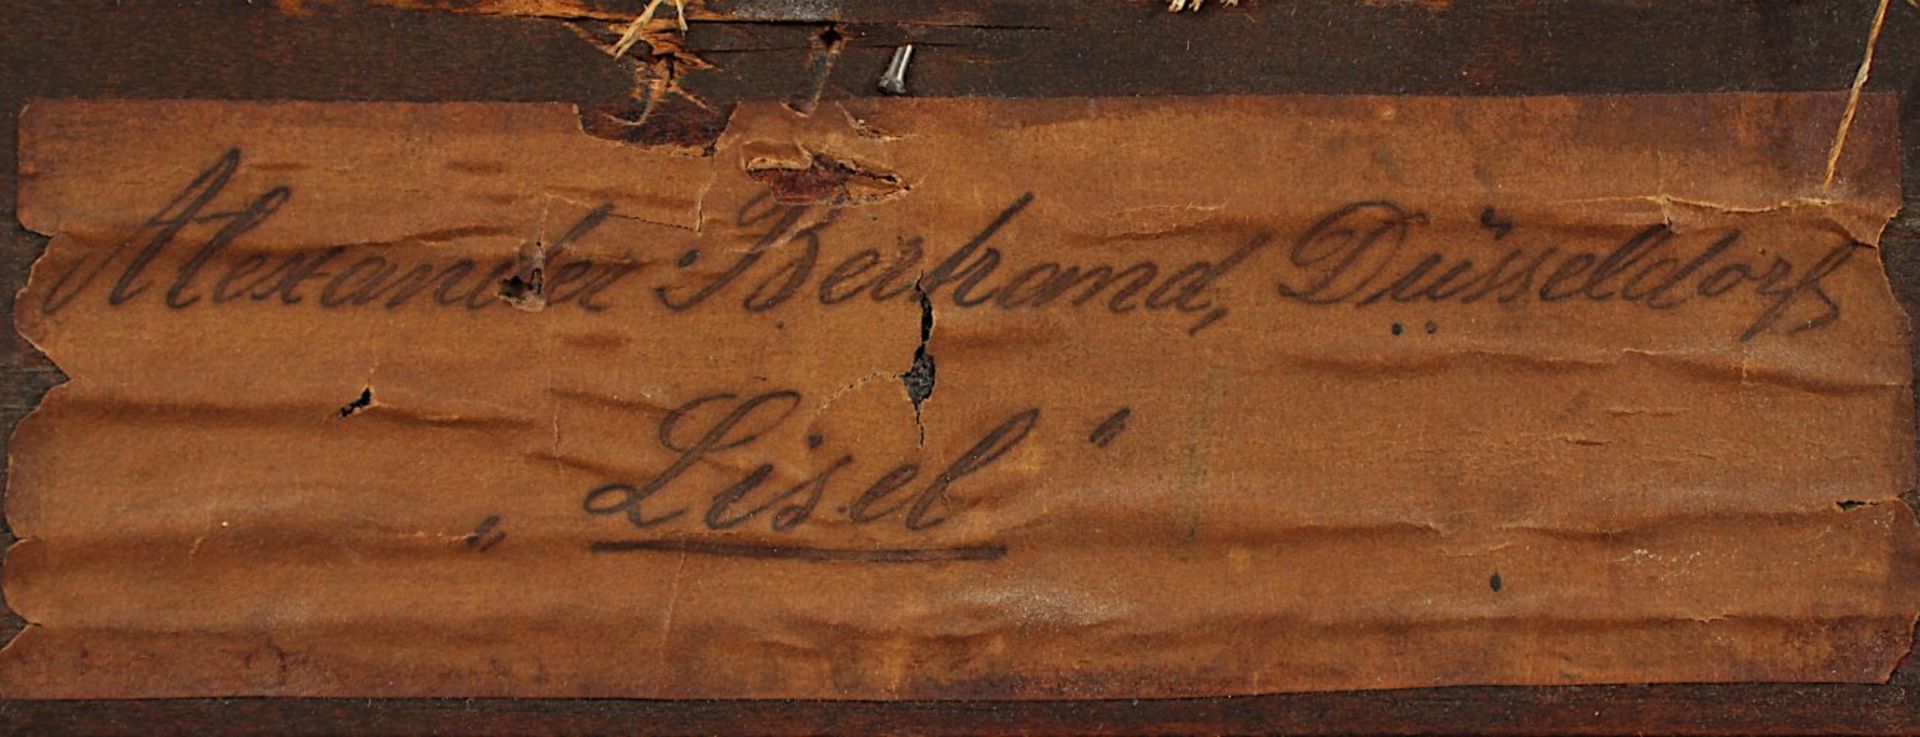 Alexander Bertrand, Düsseldorf
„Lisel“